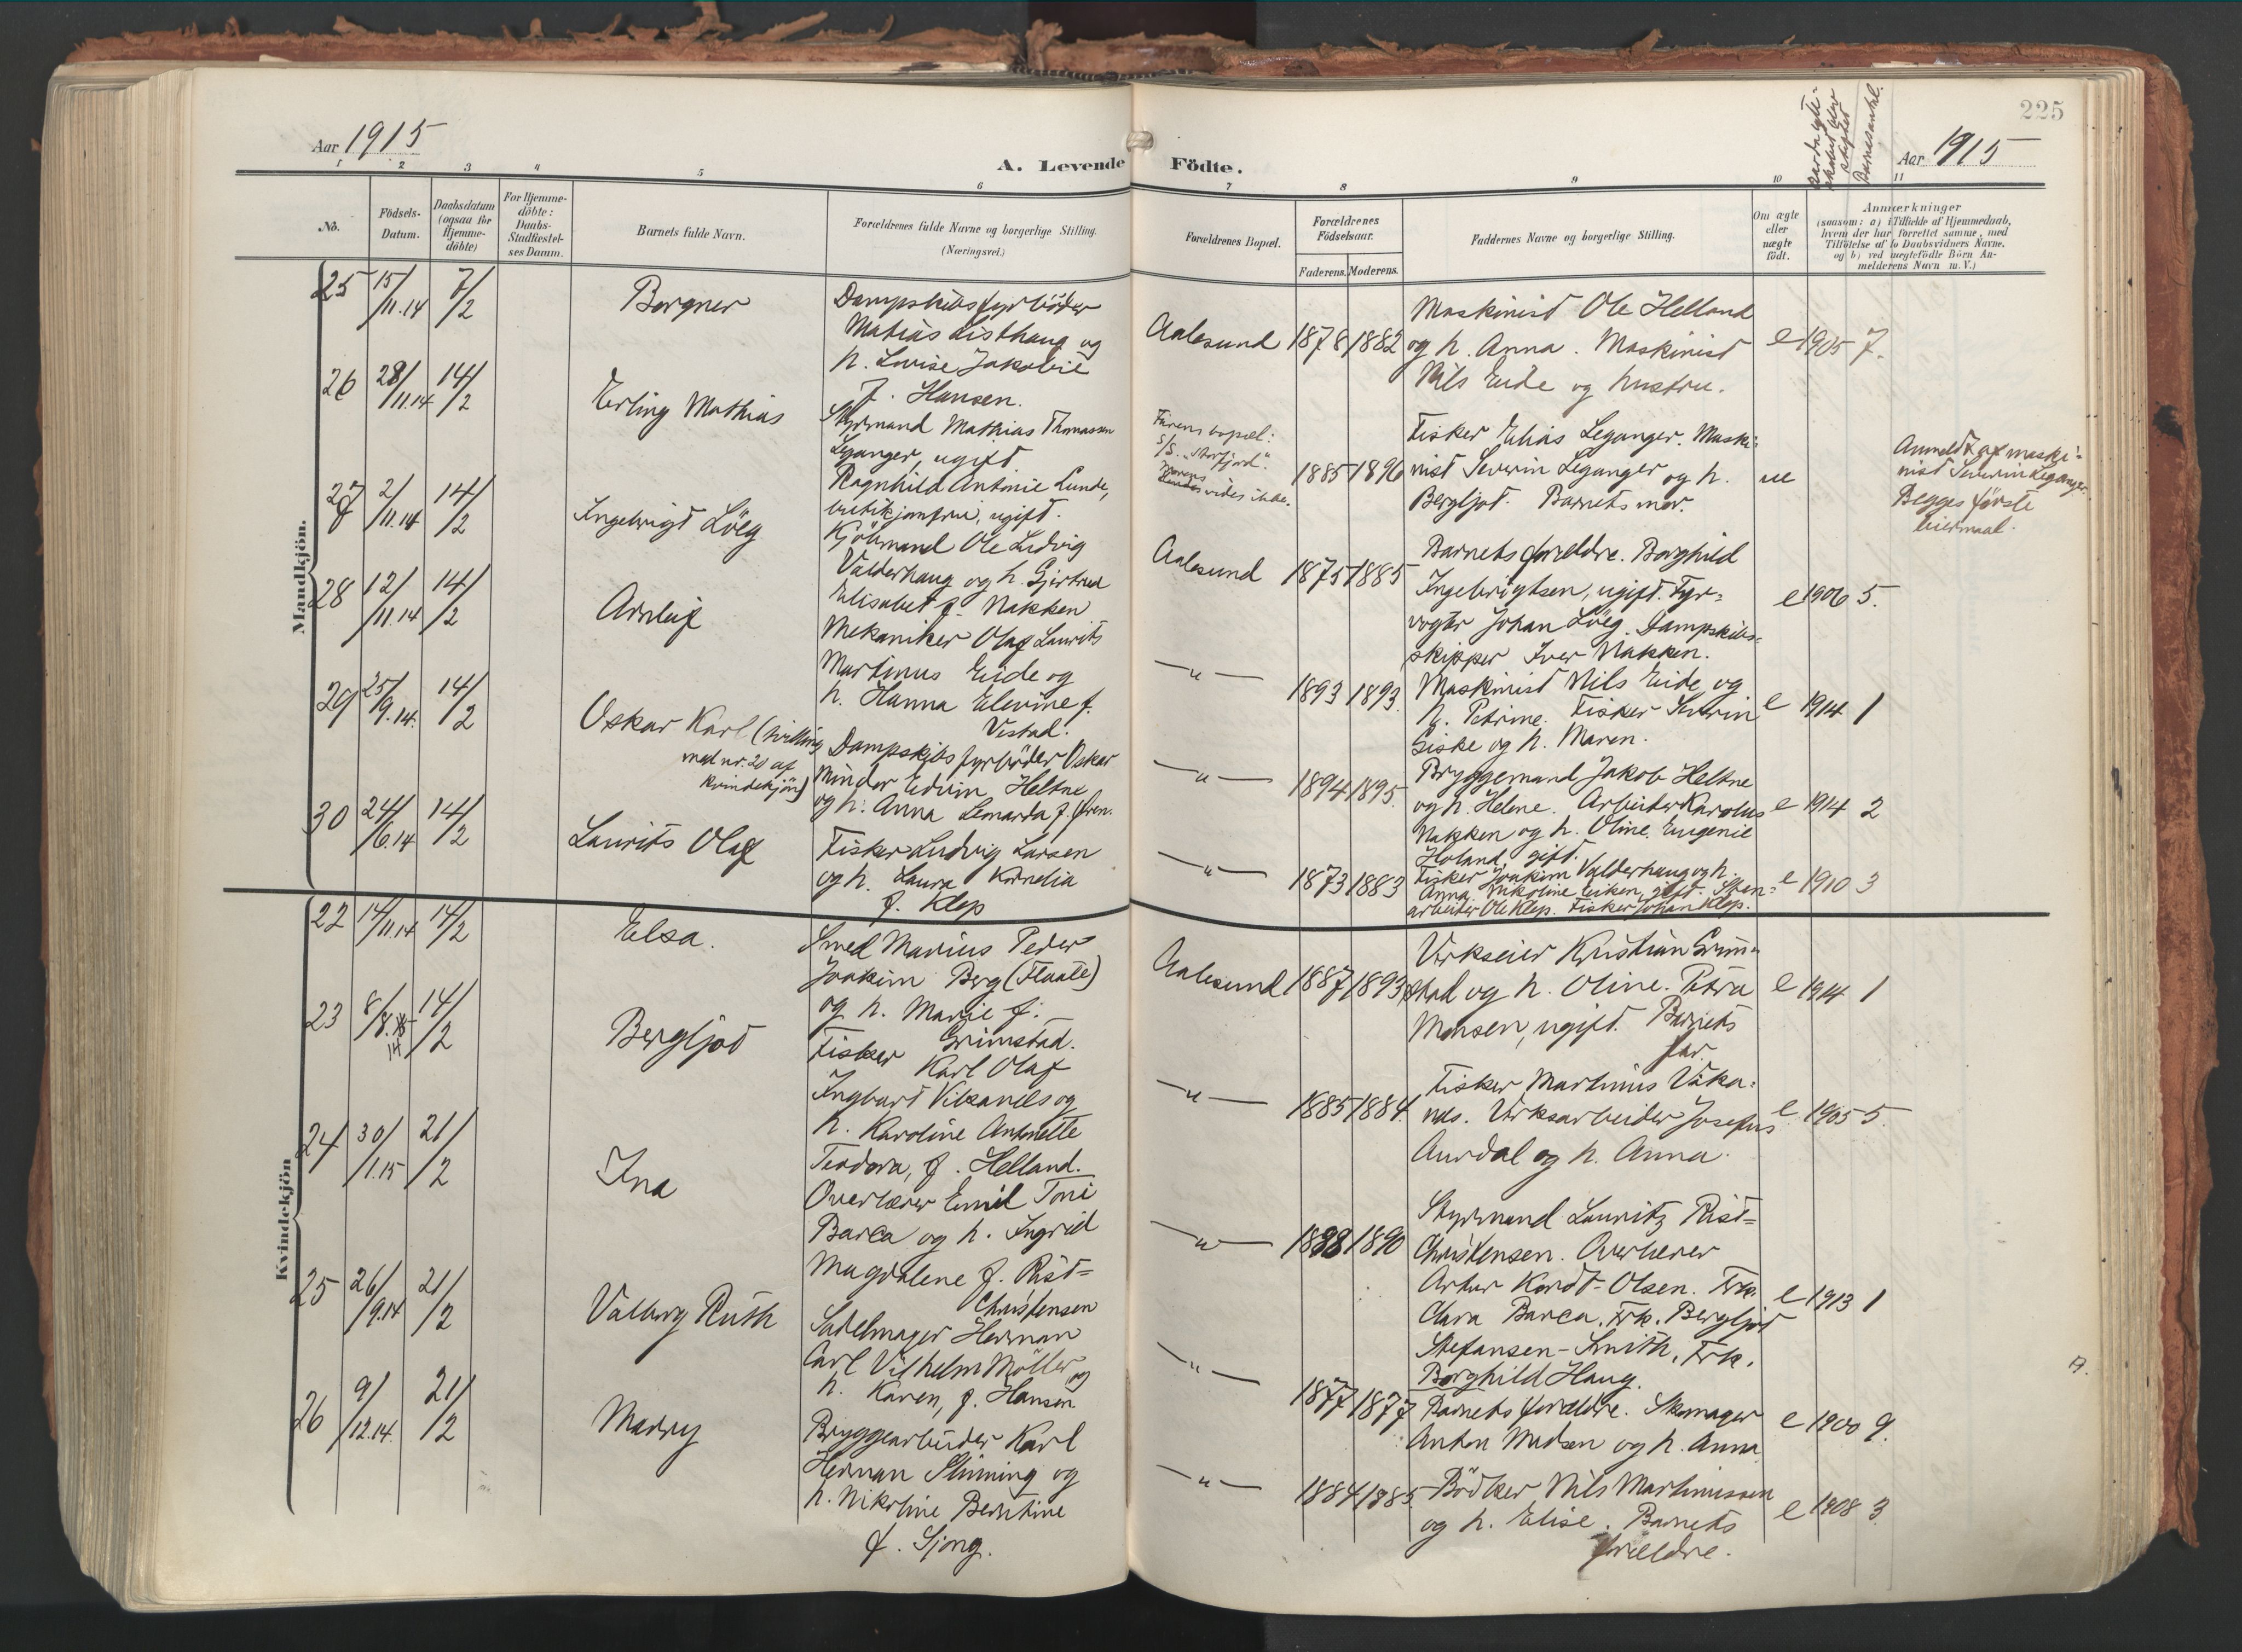 225
Aar 1915
A. Levende Fødte.
Aar 1915
Barnesantal.
1 2 3 4 5 6 7 8 9 10 11
No.
Födsels-
Datum.
Daabsdatum
(ogsaa for
Hjemme-
döbte)
For Hjemme-
döbte:
Daabs-
Stadfæstel-
ses Datum.
Barnets fulde Navn.
Forældrenes fulde Navne og borgerlige Stilling.
(Næringsvei.)
Forældrenes Bopæl.
Forældrenes
Födselsaar.
Faderens. Moderens.
Faddernes Navne og borgerlige Stilling.
Om ægte
eller
uægte
født.
Anmærkninger
(saasom: a) i Tilfælde af Hjemmedaab,
hvem der har forrettet samme, med
Tilföielse af to Daabsvidners Navne.
og b) ved uægtefödte Börn An-
melderens Navn m. V.)
Mandkjön.
25 15/11.14 7/2
Borgner
Dampskibsfyrböder
Matias Listhaug og
h. Lovise Jakobie
f. Hansen.
Aalesund 1878 1882
Maskinist Ole Helland
og h. Anna. Maskinist
Nils Eide og hustru.
e 1905 7.
26 28/11.14 14/2
Erling Mathias
Styrmand Mathias Thomassen
Leganger, ugift
Ragnhild Antonie Lunde,
butikjomfru, ugift.
Farens bopæl:
S/S. "Storfjord".
Morens
vides ikke.
1885 1896
Fisker Elias Leganger. Maski-
nist Severin Leganger og h.
Bergljot. Barnets mor.
ue
Anmeldt af maski-
nist Severin Leganger.
Begges første
leiermaal.
27 2/11.14 14/2
Ingebrigt Löeg
Kjölmand Ole Ludvig
Valderhaug og h. Gjertrud
Elisabet f. Nakken
Aalesund 1875 1885
Barnets forældre. Borghild
Ingebrigtsen, ugift. Fyr-
vogter Johan Löeg. Dampskibs-
skipper Iver Nakken.
e 1906 5.
28 12/11.14 14/2
Arnleif
Mekaniker Olaf Laurits
Martinus Eide og
h. Hanna Elevine f.
Vestad.
—"— 1893 1893.
Maskinist Nils Eide og
h. Petrine. Fisker Severin
Giske og h. Maren.
e 1914 1
29 25/9.14. 14/2
Oskar Karl (tvilling
med nr. 20 af
kvindekjön)
Dampskibsfyrböder Oskar
Mindor Edvin Heltne
og h. Anna Lenarda f. Øren.
—"— 1894 1895.
Bryggemand Jakob Heltne
og h. Helene. Arbeider Karolus
Nakken og h. Oline. Eugenie
Holand, gift.
e 1914 2
30 24/6.14 14/2
Laurits Olaf
Fisker Ludvig Larsen
og h. Laura Kornelia
f. Klep
—"— 1873 1883
Fisker Joakim Valderhaug og h.
Anna Nikoline Eiken, gift. Sten-
arbeider Ole Klep. Fisker Johan Klep.
e 1910 3
Kvindekjön
22 14/11.14 14/2
Elsa.
Smed Marius Peder
Joakim Berg (Flaate)
og h. Marie f.
Grimstad.
Aalesund 1887 1893
Verkseier Kristian Grim-
stad og h. Oline. Petra
Monsen, ugift. Barnets
far.
e 1914 1
23 8/8.14 14/2
Bergljot
Fisker Karl Olaf
Ingbart Vikanes og
h. Karoline Antonette
Teodora, f. Helland.
—"— 1885 1884.
Fisker Martinus Vika-
nes. Verksarbeider Josefus
Aurdal og h. Anna.
e 1905 5.
24 30/1.15 21/2
Ina
Overlærer Emil Toni
Barca og h. Ingrid
Magdalene f. Rist-
Christensen
—"— 1888 1890
Styrmand Lauritz Rist-
Christensen. Overlærer
Artur Kordt-Olsen. Frk.
Clara Barca. Frk. Bergljot
Stefansen-Smith, Frk.
Borghild Haug.
e 1913 1
25 26/9.14 21/2
Valborg Ruth
Sadelmager Herman
Carl Vilhelm Möller og
h. Karen, f. Hansen
—"— 1877 1877
Barnets forældre. Skomager
Anton Madsen og h. Anna
e 1900 9.
26 9/12.14. 21/2
Marry
Bryggearbeider Karl
Herman Slinning og
h. Nikoline Berntine
f. Gjong.
—"— 1884 1885.
Bödker Nils Martinussen
og h. Elise. Barnets
forældre.
e 1908 3.